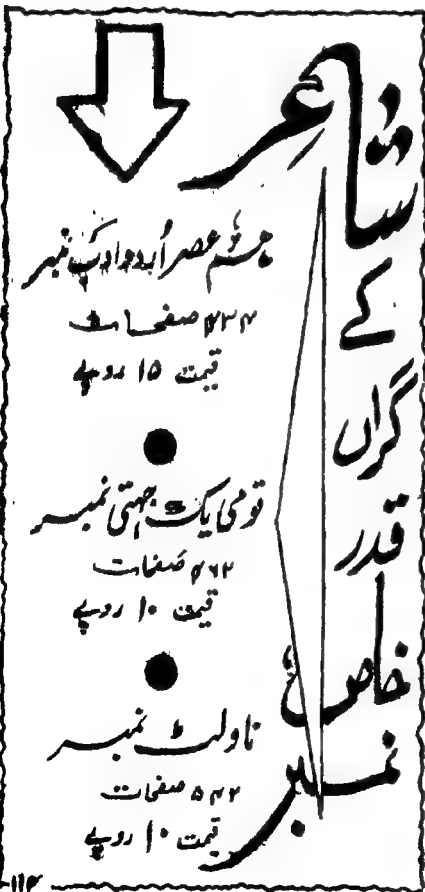 شاعر
کے
گراں
قدر
خاص
نمبر
ہم عصر اُردو ادب نمبر
۷۳۴ صفحات
قیمت ۱۵ روپے
قومی یک جہتی نمبر
۴۶۲ صفحات
قیمت ۱۰ روپے
ناولٹ نمبر
۵۴۲ صفحات
قیمت ۱۰ روپے